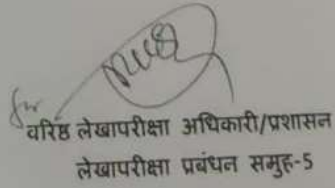 वरिष्ठ लेखापरीक्षा अधिकारी/प्रशासन
लेखापरीक्षा प्रबंधन समुह-5